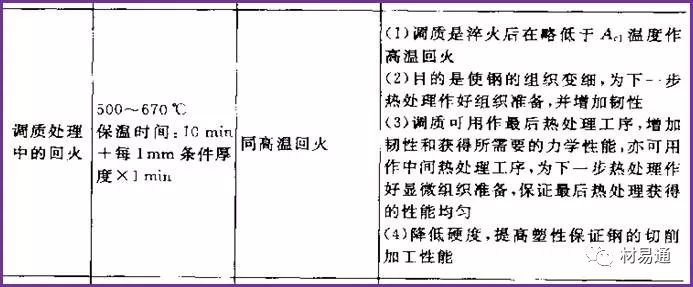 调质处理
中的回火
500～670℃
保温时间:10 min
＋每 1mm 条件厚
度×1 min
同高温回火
(1)调质是淬火后在略低于 Ac1 温度作
高温回火
(2)目的是使钢的组织变细,为下一步
热处理作好组织准备,并增加韧性
(3)调质可用作最后热处理工序,增加
韧性和获得所需要的力学性能,亦可用
作中间热处理工序,为下一步热处理作
好显微组织准备,保证最后热处理获得
的性能均匀
(4)降低硬度,提高塑性保证钢的切削
加工性能
材易通